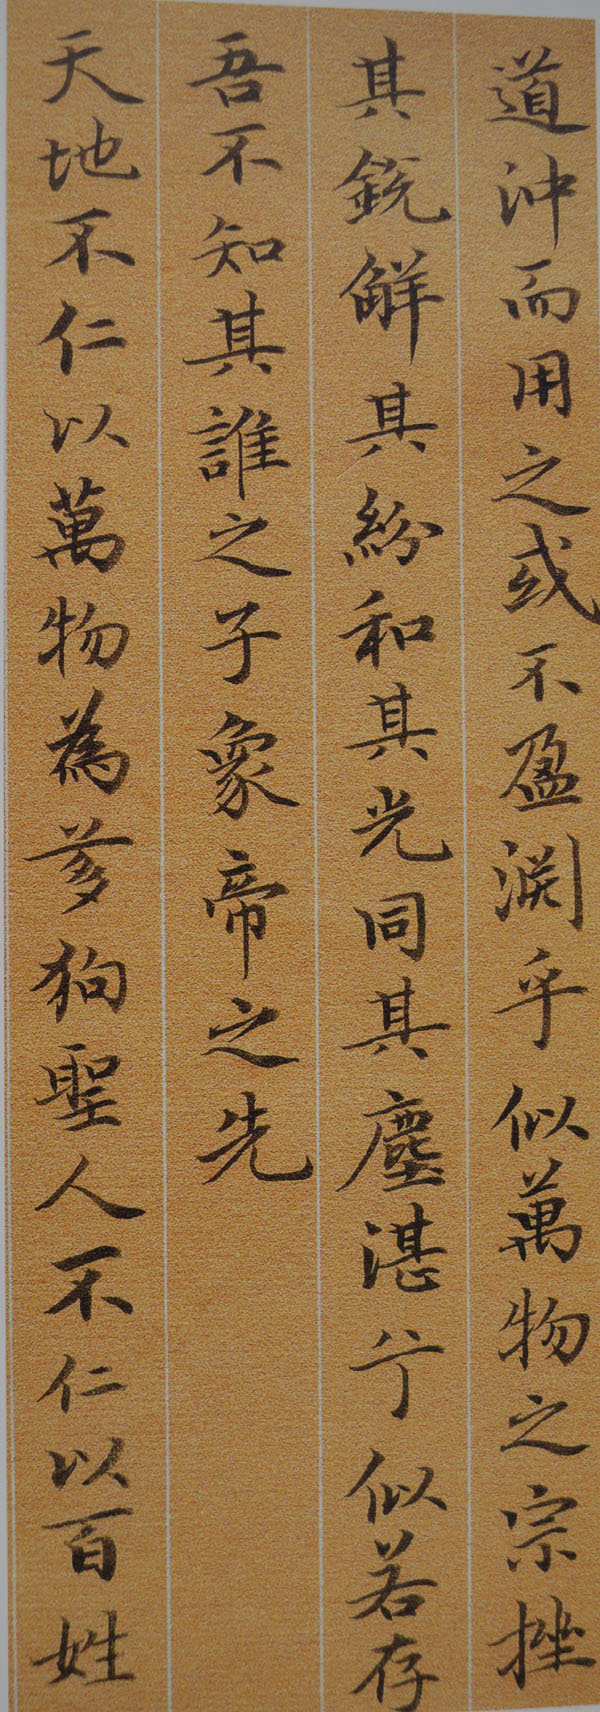 道沖而用之或不盈淵乎似萬物之宗挫
其銳解其紛和其光同其塵湛兮似若存
吾不知其誰之子象帝之先
天地不仁以萬物為芻狗聖人不仁以百姓